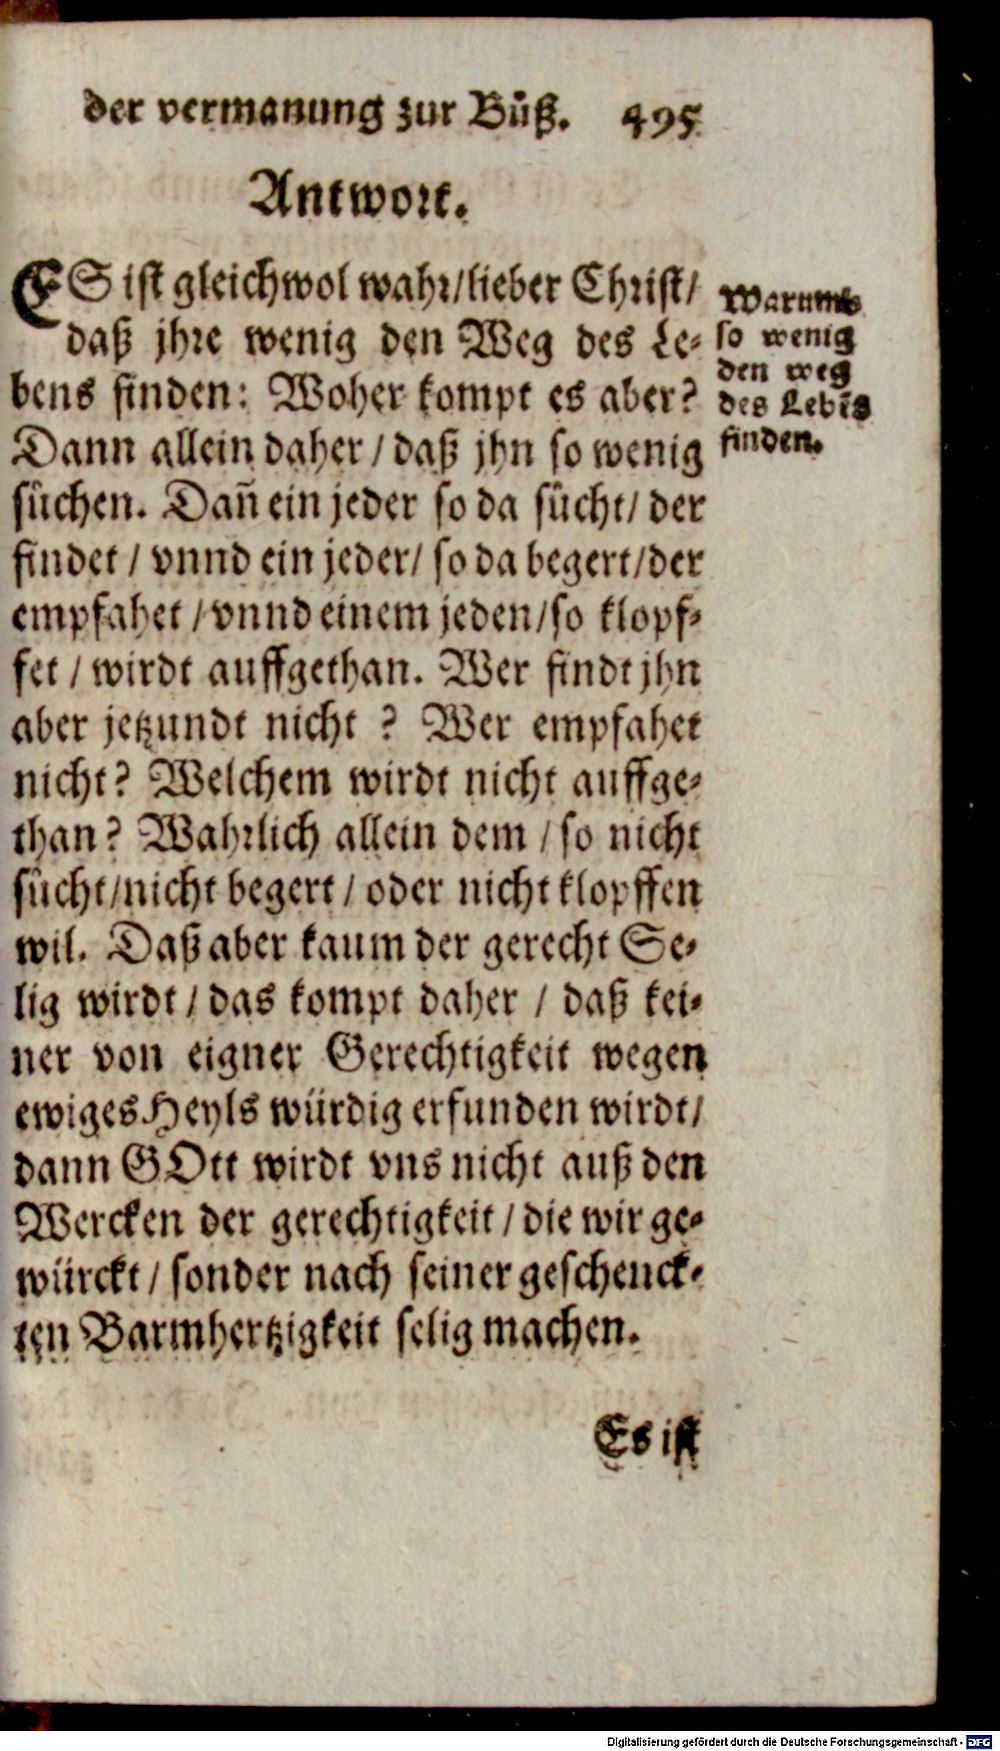 der vermanung zur Bůß. 495
Antwort.
ES ist gleichwol wahr/lieber Christ/
daß jhre wenig den Weg des Le-
bens finden: Woher kompt es aber?
Dann allein daher / daß jhn so wenig
sůchen. Dañ ein jeder so da sůcht/ der
findet / vnnd ein jeder/ so da begert/der
empfahet / vnnd einem jeden/so klopf-
fet / wirdt auffgethan. Wer findt jhn
aber jetzundt nicht ? Wer empfahet
nicht? Welchem wirdt nicht auffge-
than? Wahrlich allein dem / so nicht
sůcht/nicht begert / oder nicht klopffen
wil. Daß aber kaum der gerecht Se-
lig wirdt / das kompt daher / daß kei-
ner von eigner Gerechtigkeit wegen
ewiges Heyls würdig erfunden wirdt/
dann GOtt wirdt vns nicht auß den
Wercken der gerechtigkeit / die wir ge-
würckt / sonder nach seiner geschenck-
ten Barmhertzigkeit selig machen.
Warumb
so wenig
den weg
des Lebẽs
finden.
Es ist
Digitalisierung gefördert durch die Deutsche Forschungsgemeinschaft - DFG